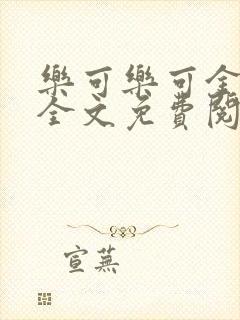 樂可樂可全
全文免費閱
宣蕪